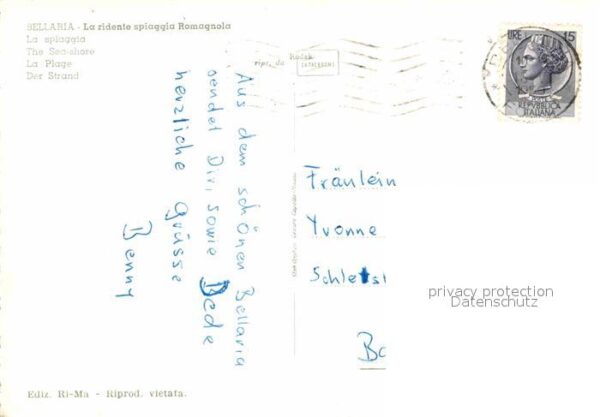 BELLARIA - La ridente spiaggia Romagnola
La spiaggia
The Sea-shore
La Plage
Der Strand
ripr. da Kodak
EKTACHROME
LIRE 15
POSTE
REPVBBLICA
ITALIANA
Aus dem schönen Bellaria
sendet Dir, sowie Dede
herzliche Grüsse
Benny
Fräulein
Yvonne
privacy protection
Datenschutz
Ba
Ediz. Ri-Ma - Riprod. vietata.